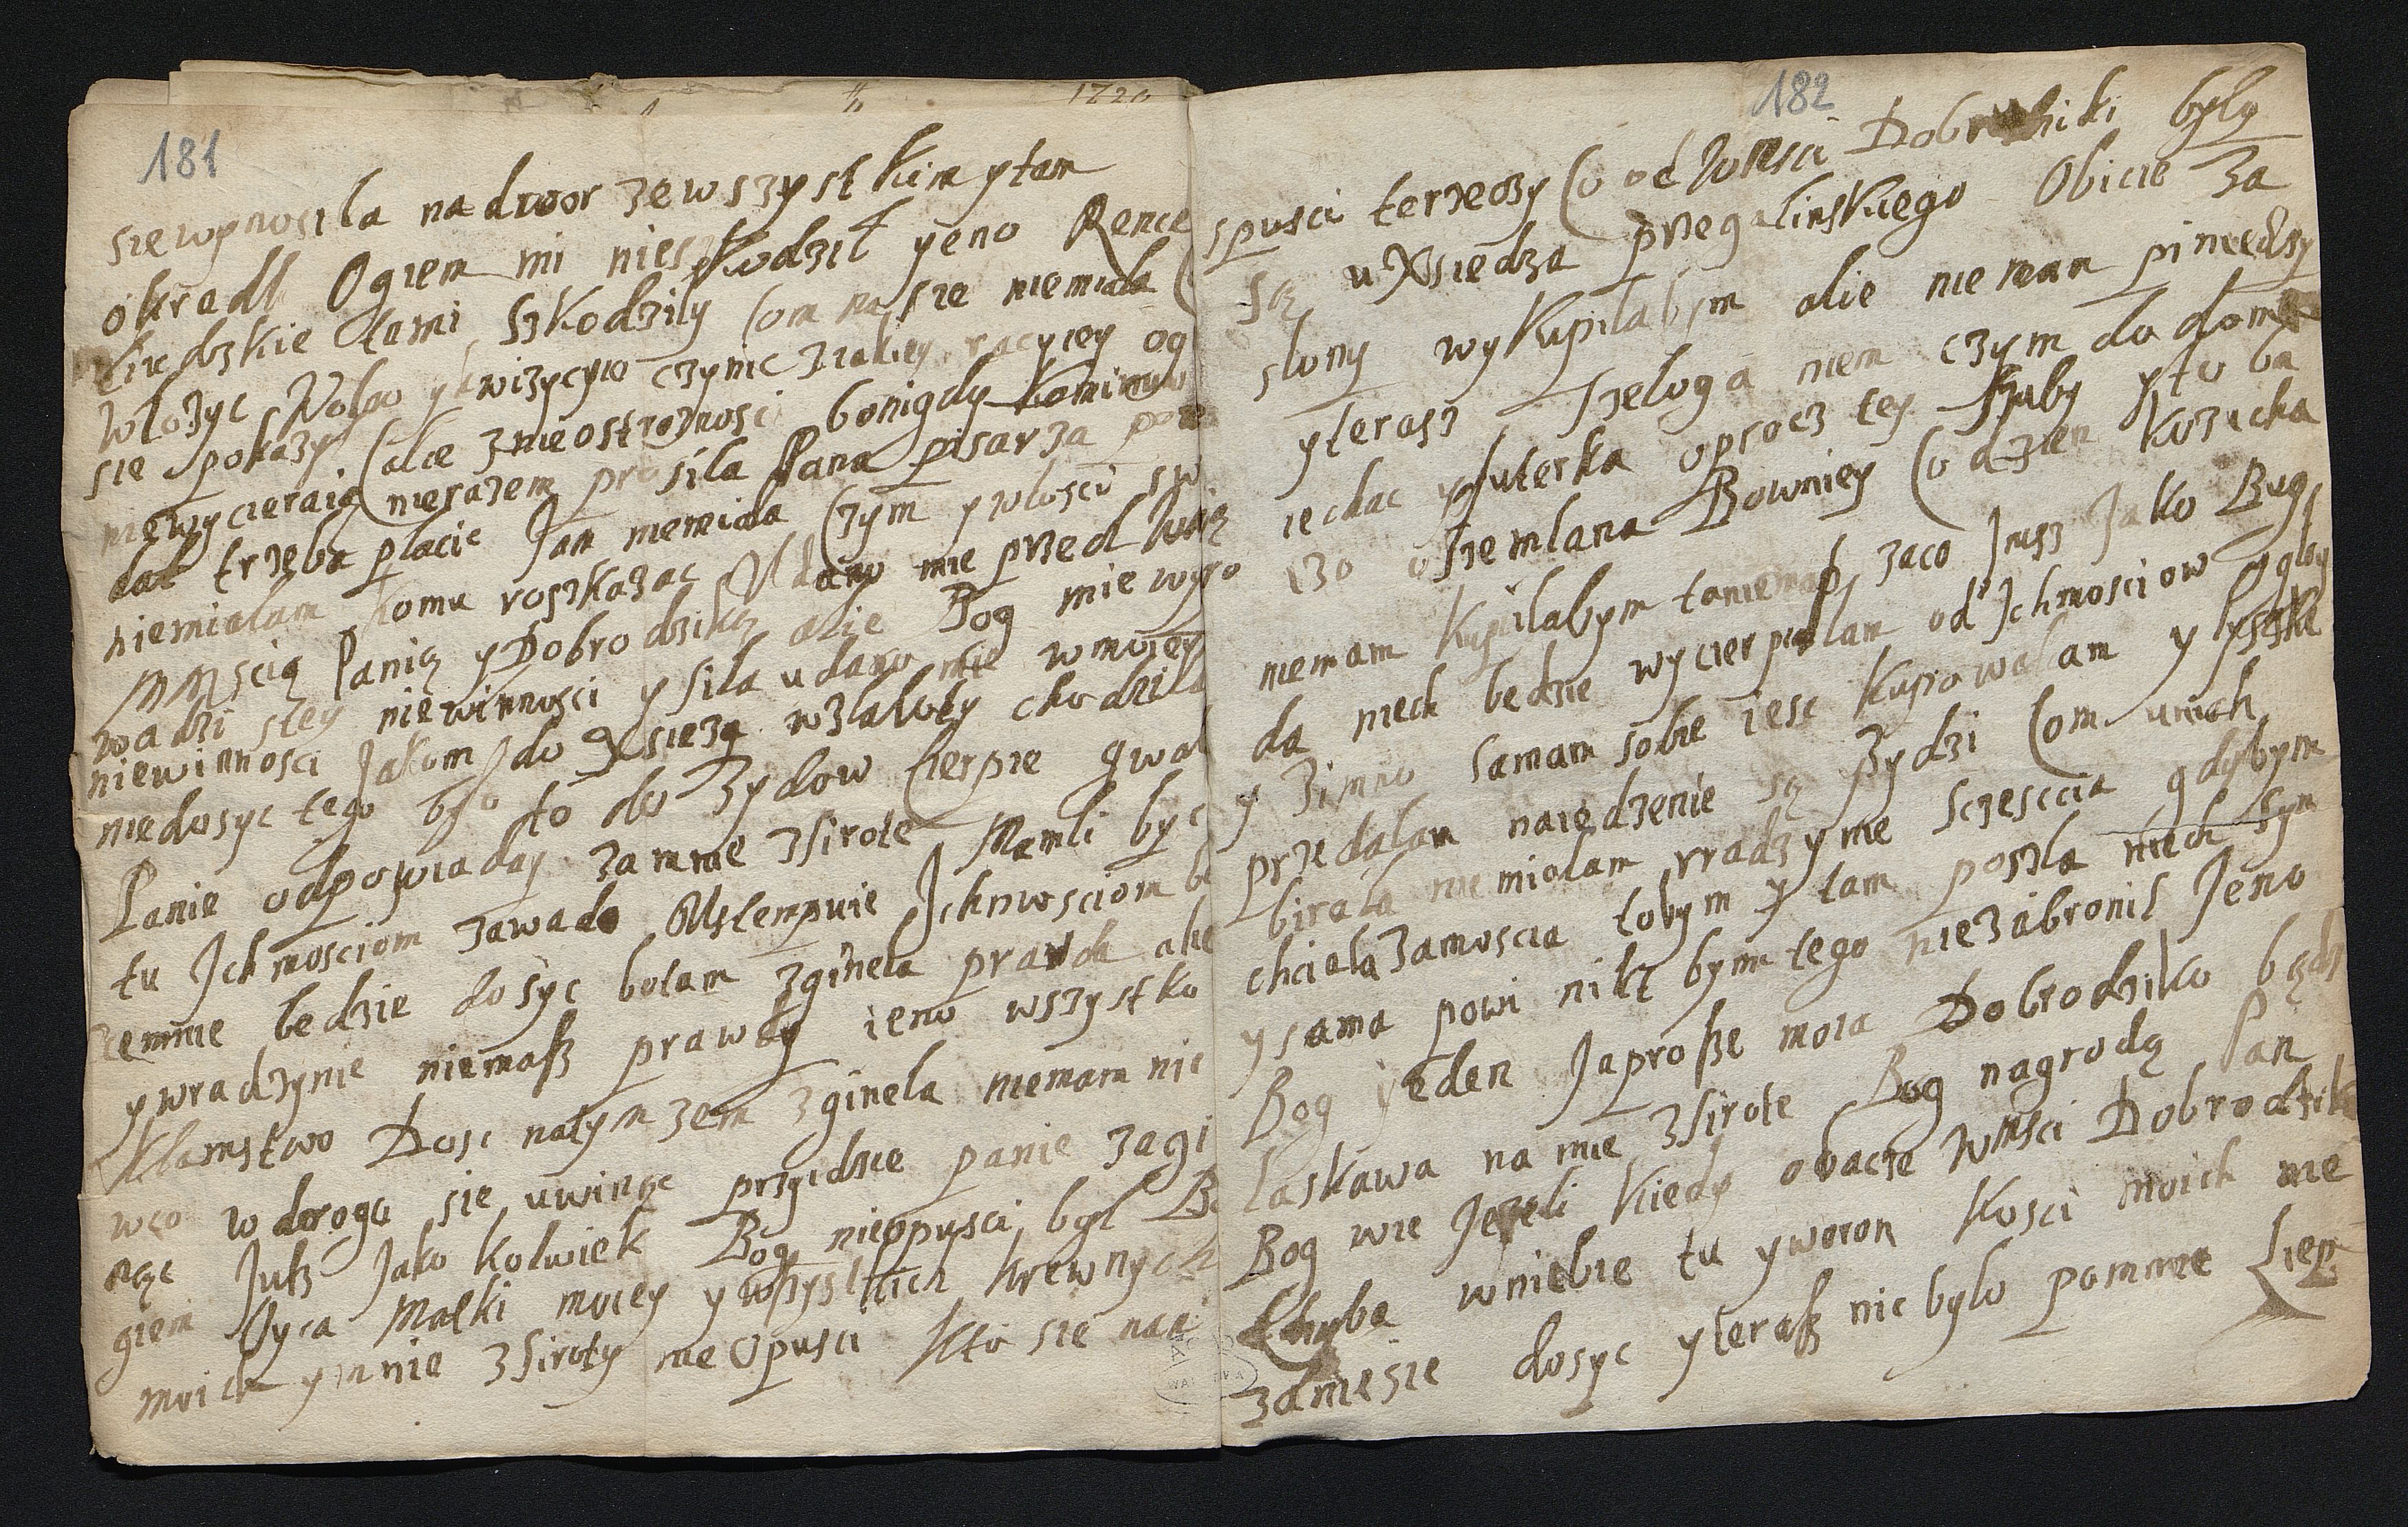 1720
181
sie wynosila na dwor ze wszystkim y tam
okradl Ogiem mi nieszkodzil yeno Rence
ludzkie temi szkodzily com na sie niemiala
wlozyc Wolno ykwizycyio czynic z iakiey racyiey og
sie pokazyl alie z nieostroznosci bo nigdy kominow
niewycieraią nierazem prosila Pana pisarza
dac trzeba placic Jam niemiala czym y wlosci
niemialam komu roskazac Udano mie przed Wasz
Mscią Panią y Dobrodziką alie Bog mie wypro
wadzi stey niewinnosci y sila udano mie w moiey
niewinnosci Jakom do Xsieza w zaloby chodzila
niedosyc tego bylo to do Zydow Cierpie gwal
Panie odpowiaday za mnie zsirote Memli byc
tu Ichmosciom zawado Ustempuie Ichmosciom
zemnie bedzie dosyc bolam zginela prawda alie
y wradzynie niemasz prawdy ieno wszystko
klamstwo Dosc natym zem zginela niemam nic
wco w droga sie uwinąc przyidzie panie zagi
nąc Jusz Jako kolwiek Bog nieopusci byl Bo
giem Oyca Matki moiey y wszystkich krewnych
moich y mnie zsiroty nie Opusci kto sie nan
182
spusci terzeczy co od WMsci Dobrodziki byly
są u Xsiedza przegalinskiego Obicie za
slony wykupilabym alie niemam piniedzy
y terasz szeloga niem czym do domu
iechac y futerka oprocz tey szuby y to ba
rzo oszemlana Bowniey co dzien kozucha
niemam kupilabym toniemasz zaco Jusz Jako Bug
da niech bedzie wycierpialam od Ichmosciow y glod
y zimno samam sobie iesc kupowalam y lyszke
przedalam naiedzenie są Zydzi com u nich
birala niemialam wradzynie sczescia gdybym
chciala zamoscia tobym y tam poszla niech sym
y sama powi nikt bym tego niezabronil Jeno
Bog yeden Ja prosze moia Dobrodziko bądz
laskawa na mie zsirote Bog nagrodą Pan
Bog wie Jezeli kiedy obacze WMsci Dobrodzik
Chyba w niebie tu y woron kosci moich nie
zaniesie dosyc y terasz nic bylo pomnie